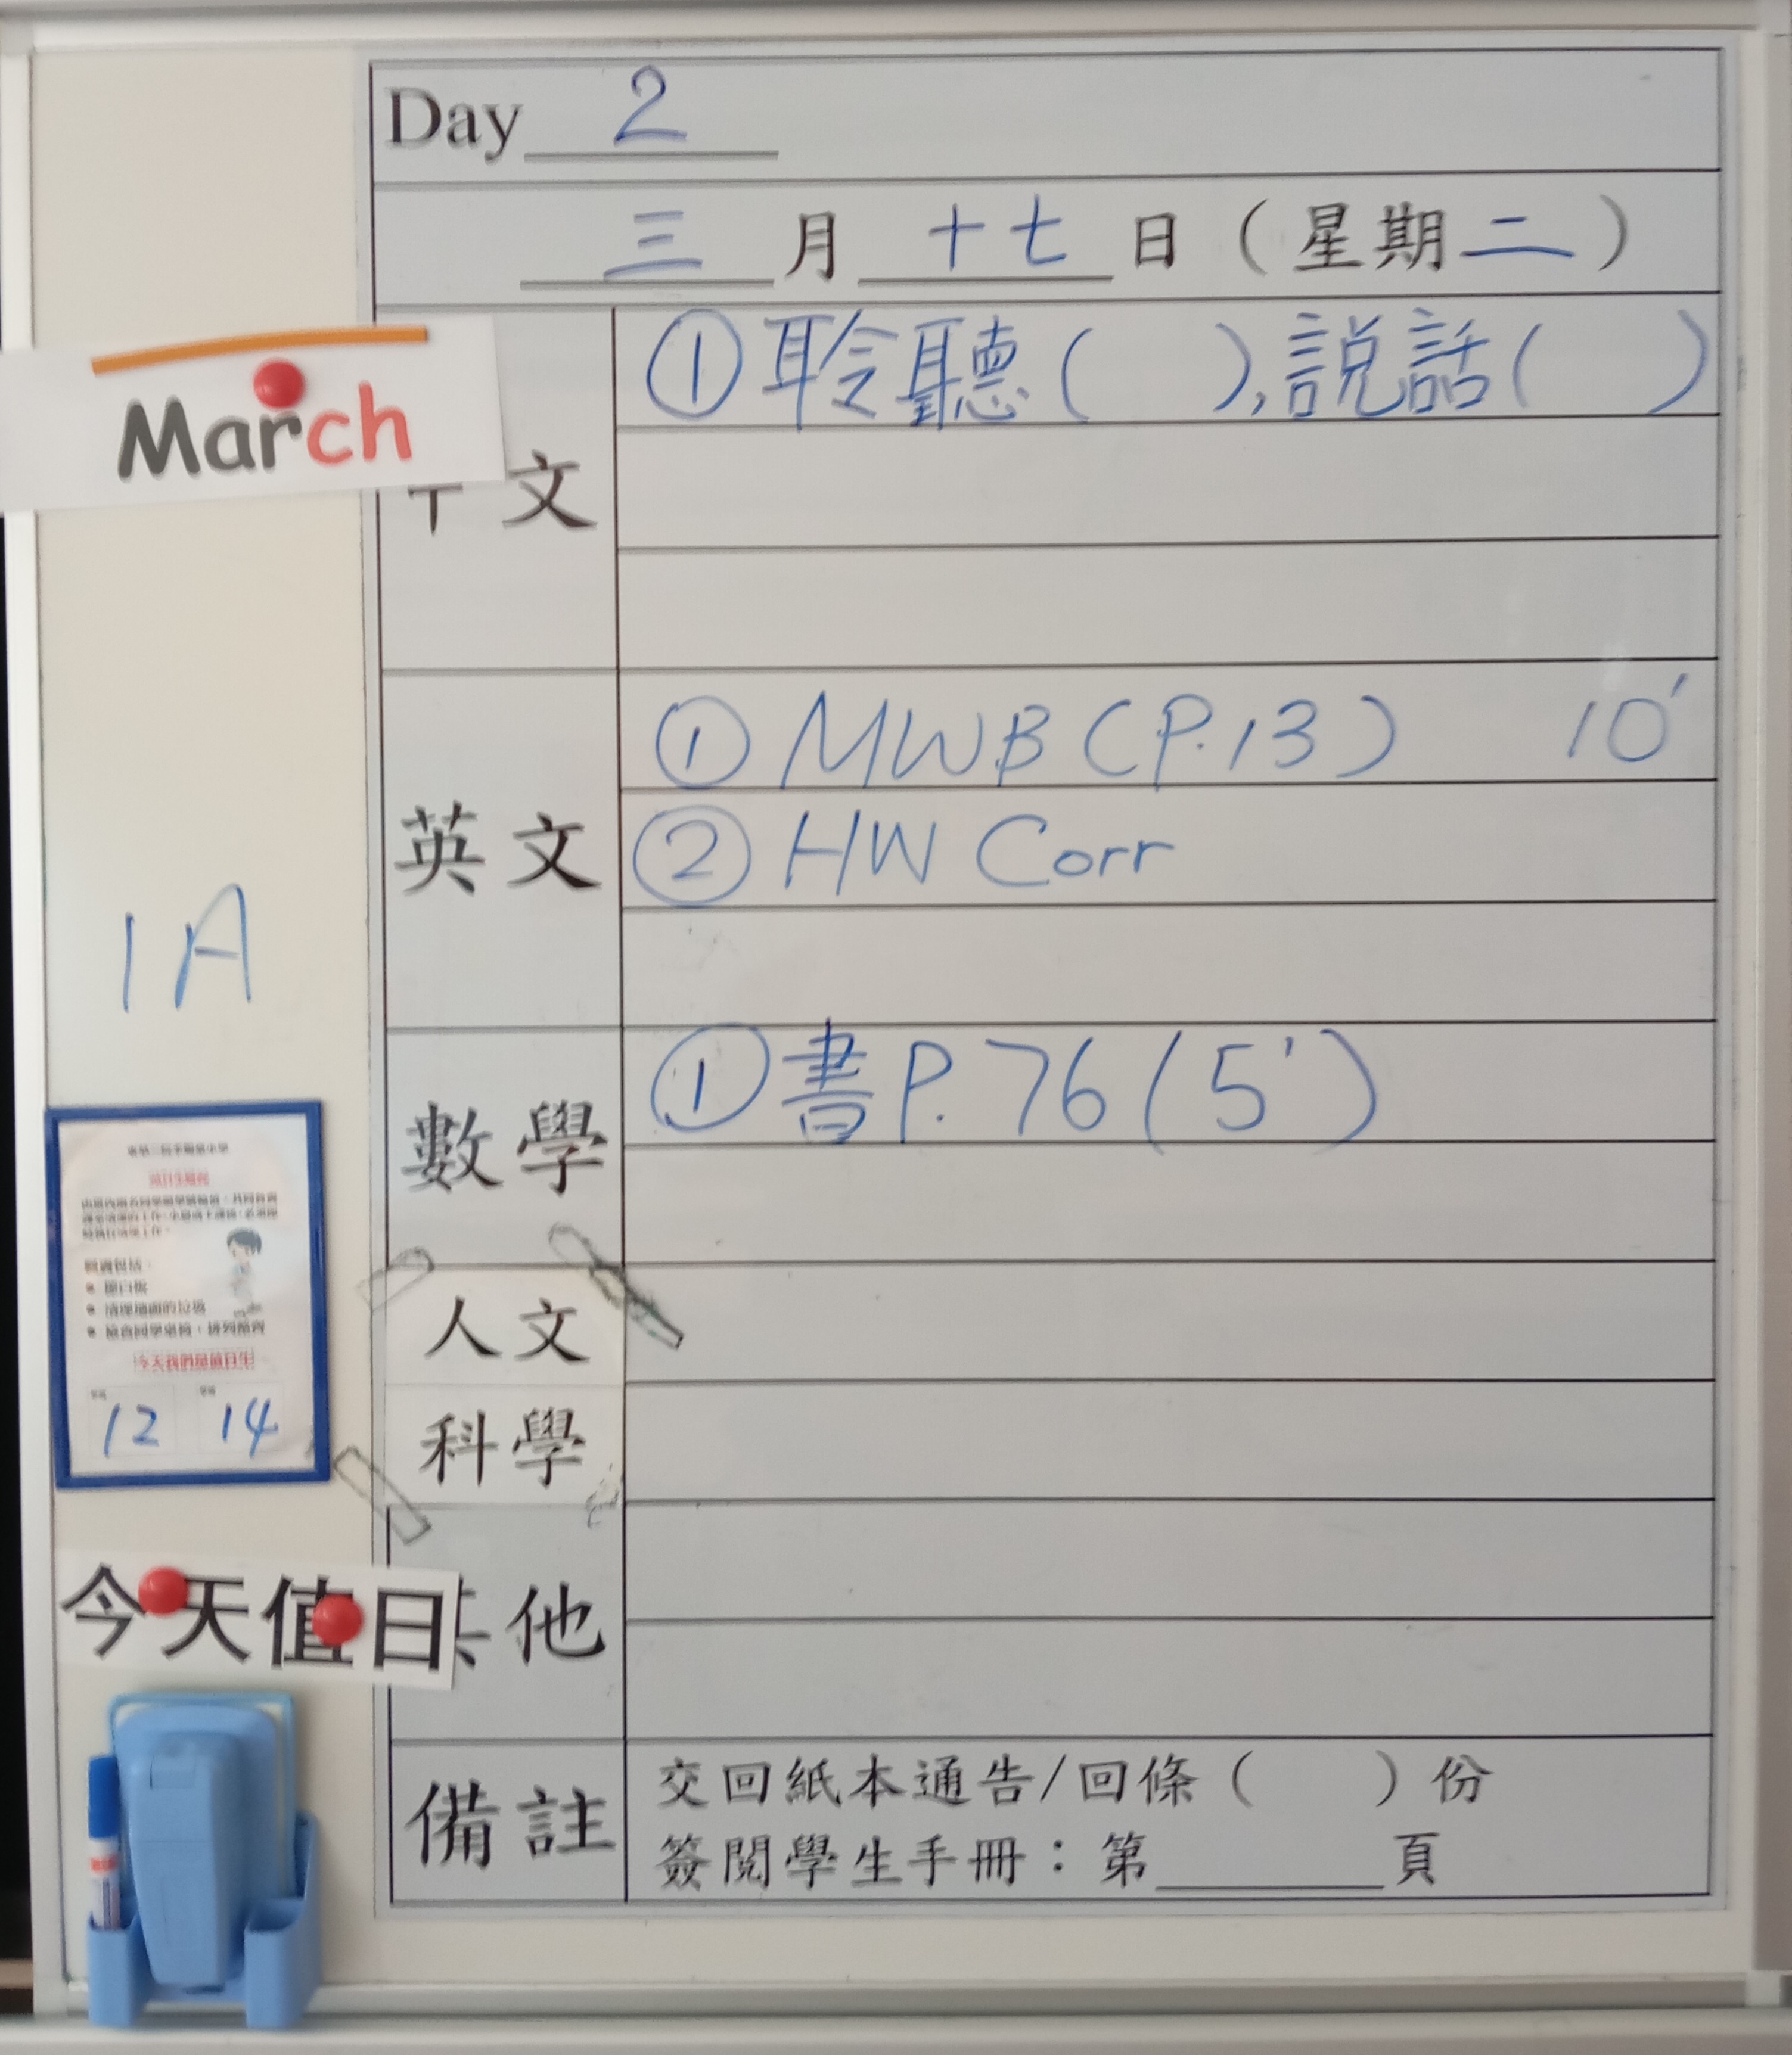 Day 2
三月十七日（星期二）
March
文
①聆聽( ),説話( )
英文
①MWB(P.13) 10'
②HW Corr
1A
數學
①書P.76(5')
人文
科學
12 14
今天值日
他
備註
交回紙本通告/回條（ ）份
簽閱學生手冊：第 頁